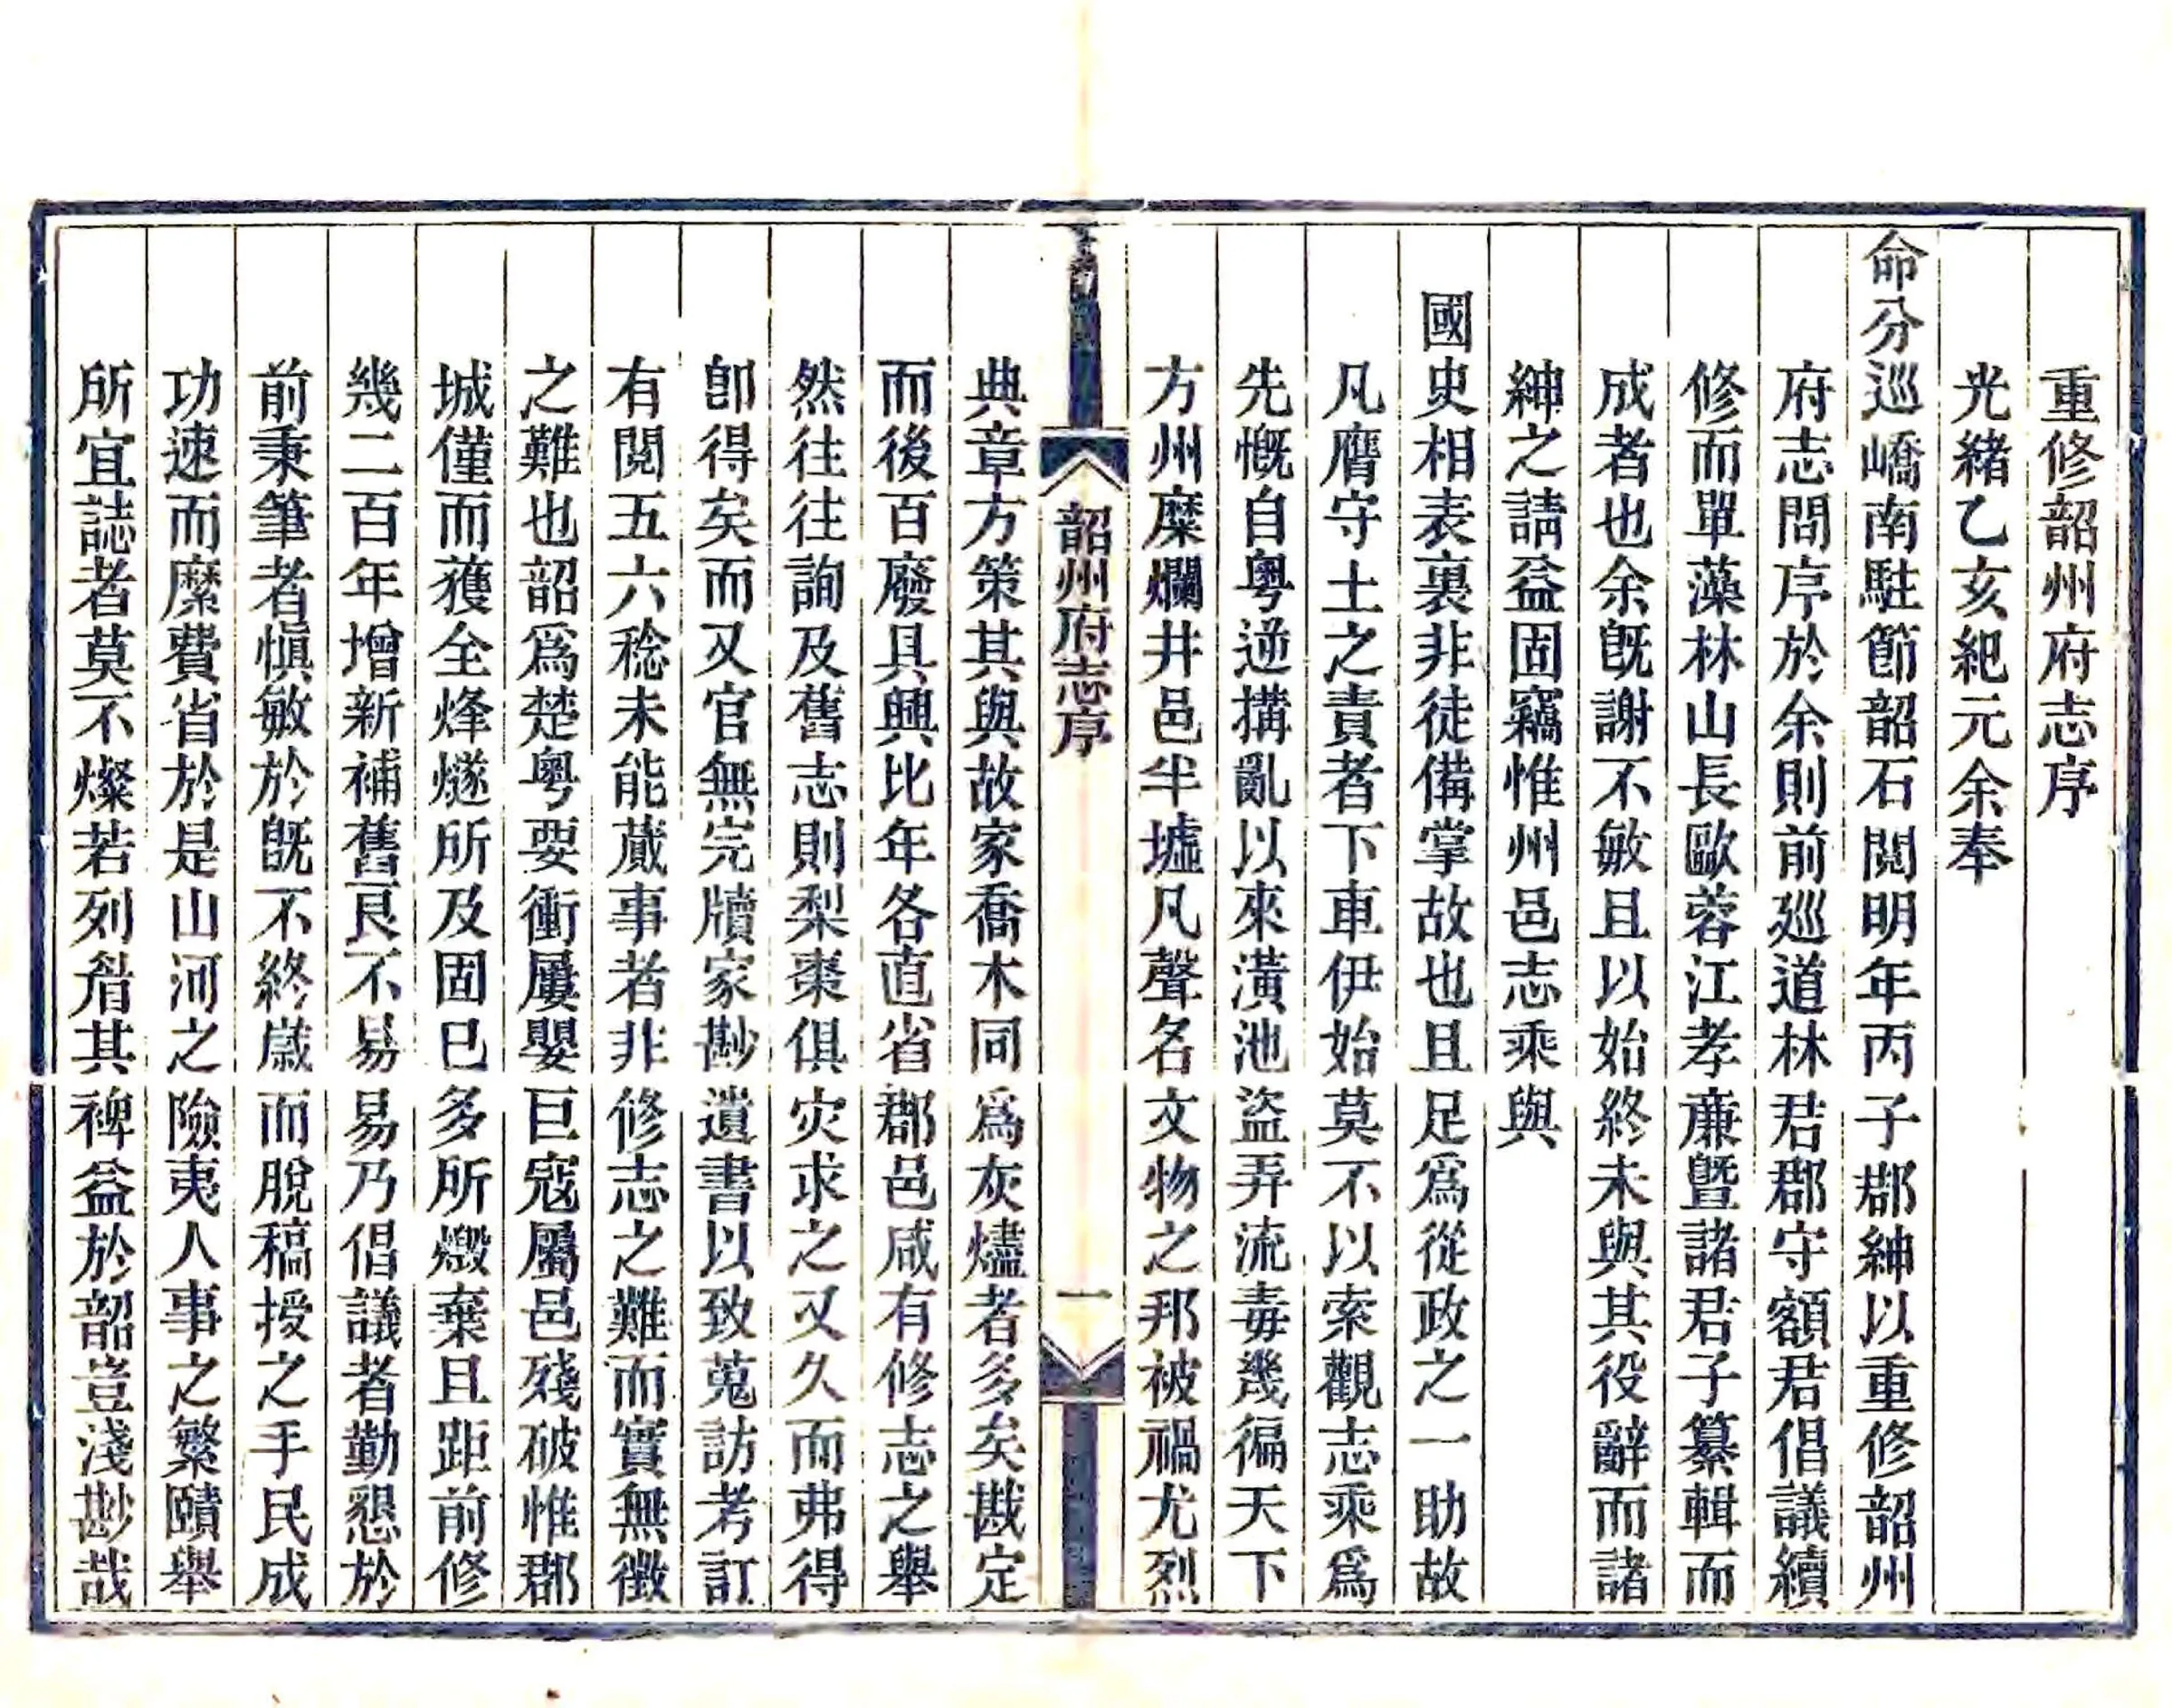 重修韶州府志序
光緒乙亥紀元余奉
命分巡嶠南駐節韶石閱明年丙子郡紳以重修韶州
府志問序於余則前廵道林君郡守額君倡議續
修而單藻林山長歐蓉江孝亷暨諸君子纂輯而
成者也余旣謝不敏且以始終未與其役辭而諸
紳之請益固竊惟州邑志乘與
國史相表裏非徒備掌故也且足爲從政之一助故
凡膺守土之責者下車伊始莫不以索觀志乘爲
先慨自粵逆搆亂以來潢池盜弄流毒幾徧天下
方州糜爛井邑半墟凡聲名文物之邦被禍尤烈
韶州府志序
一
典章方策其與故家喬木同爲灰燼者多矣戡定
而後百廢具興比年各直省郡邑咸有修志之舉
然往往詢及舊志則梨棗俱灾求之又久而弗得
卽得矣而又官無完牘家尠遺書以致蒐訪考訂
有閱五六稔未能蕆事者非修志之難而實無徵
之難也韶爲楚粵要衝屢嬰巨寇屬邑殘破惟郡
城僅而獲全烽燧所及固已多所燬棄且距前修
幾二百年增新補舊良不易易乃倡議者勤懇於
前秉筆者愼敏於旣不終歲而脫稿授之手民成
功速而縻費省於是山河之險夷人事之繁賾舉
所宜誌者莫不燦若列眉其裨益於韶豈淺尠哉